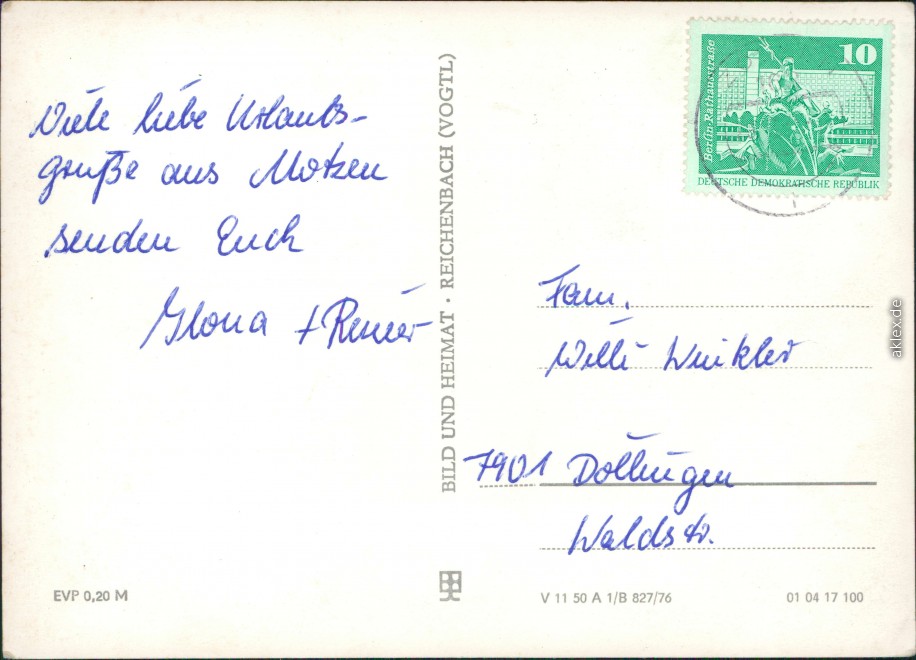 Viele liebe Urlaubs-
grüße aus Motzen
senden Euch
Ilona + Reiner
BILD UND HEIMAT · REICHENBACH (VOGTL)
10
Berlin-Rathausstraße
DEUTSCHE DEMOKRATISCHE REPUBLIK
Fam.
Willi Winkler
7901 Döllingen
Waldstr.
EVP 0,20 M
V 11 50 A 1/B 827/76
01 04 17 100
aklex.de